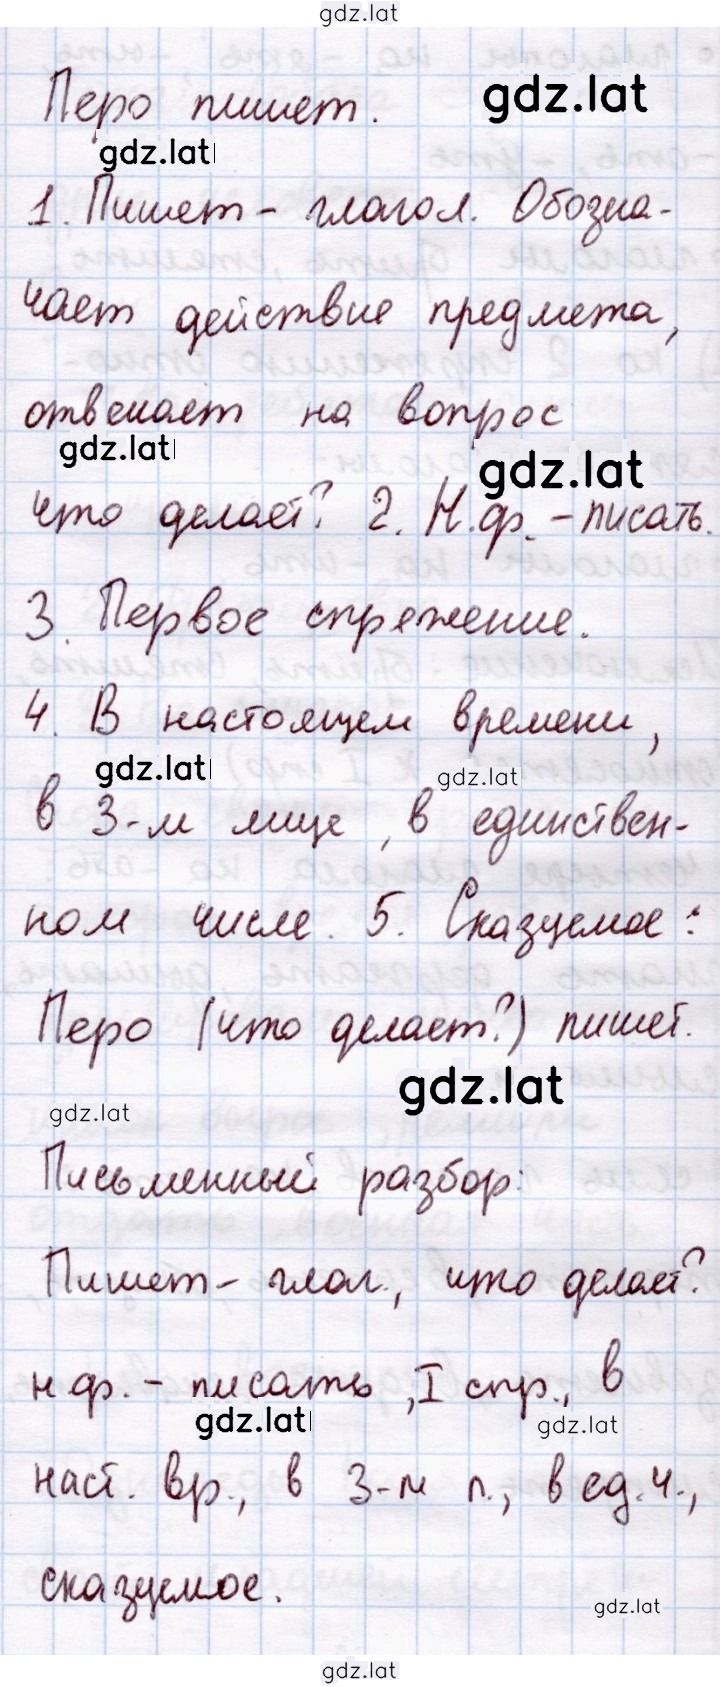 gdz.lat
Перо пишет.
gdz.lat
gdz.lat
1. Пишет - глагол. Обозна-
чает действие предмета,
отвечает на вопрос
gdz.lat
gdz.lat
что делает? 2. Н.ф. - писать.
3. Первое спряжение.
4. В настоящем времени,
gdz.lat
gdz.lat
в 3-м лице, в единствен-
ном числе. 5. Сказуемое:
Перо (что делает?) пишет.
gdz.lat
gdz.lat
Письменный разбор:
Пишет - глаг., что делает?
н.ф. - писать, I спр., в
gdz.lat
gdz.lat
наст. вр., в 3-м л., в ед.ч.,
сказуемое.
gdz.lat
gdz.lat